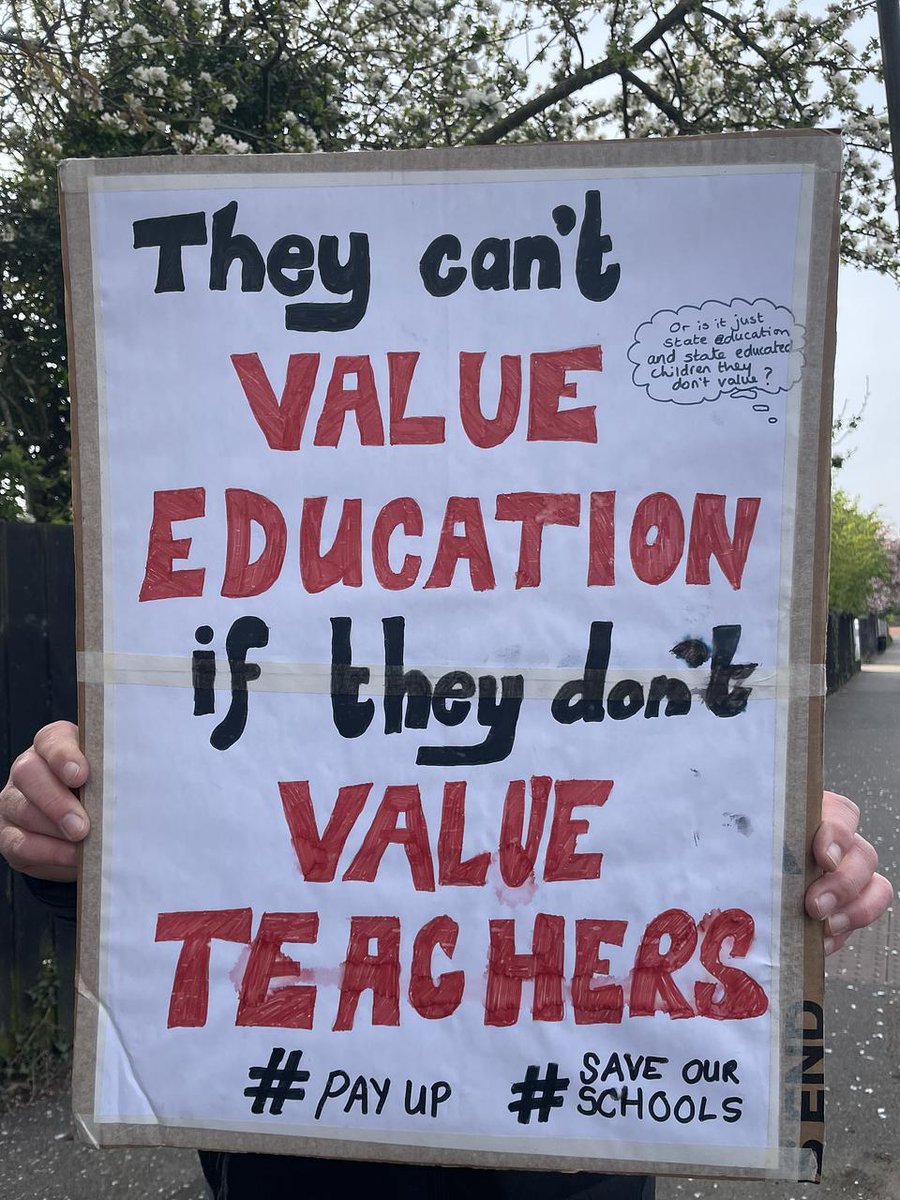 They can't
VALUE
Or is it just
state education
and state educated
children they
don't value?
EDUCATION
if they don't
VALUE
TEACHERS
#PAY UP
#SAVE OUR
SCHOOLS
END